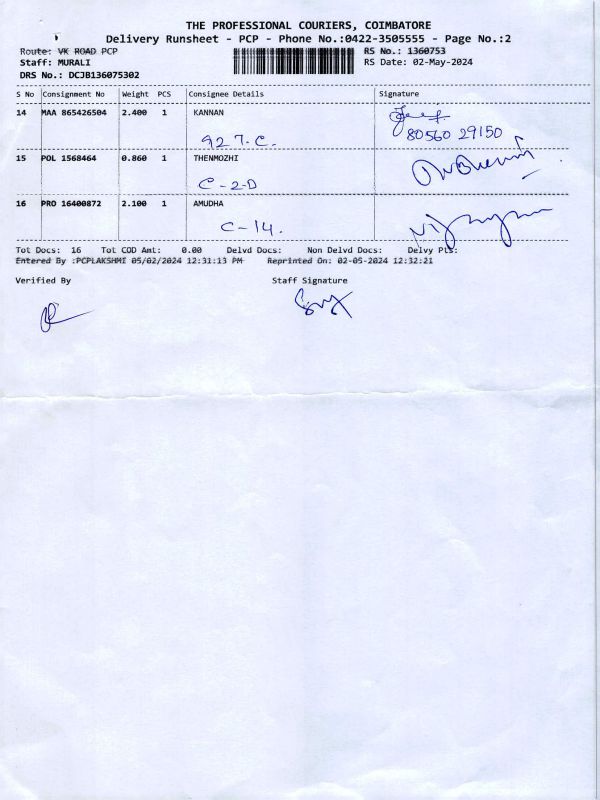 THE PROFESSIONAL COURIERS, COIMBATORE
Delivery Runsheet - PCP - Phone No.:0422-3505555 - Page No.:2
Route: VK ROAD PCP
RS No.: 1360753
Staff: MURALI
RS Date: 02-May-2024
DRS No.: DCJB136075302
S No Consignment No Weight PCS Consignee Details Signature
14 MAA 865426504 2.400 1 KANNAN
927-C. 80560 29150
15 POL 1568464 0.860 1 THENMOZHI
C-2-D
16 PRO 16400872 2.100 1 AMUDHA
C-14.
Tot Docs: 16 Tot COD Amt: 0.00 Delvd Docs: Non Delvd Docs: Delvy Pts:
Entered By :PCPLAKSHMI 05/02/2024 12:31:13 PM Reprinted On: 02-05-2024 12:32:21
Verified By Staff Signature